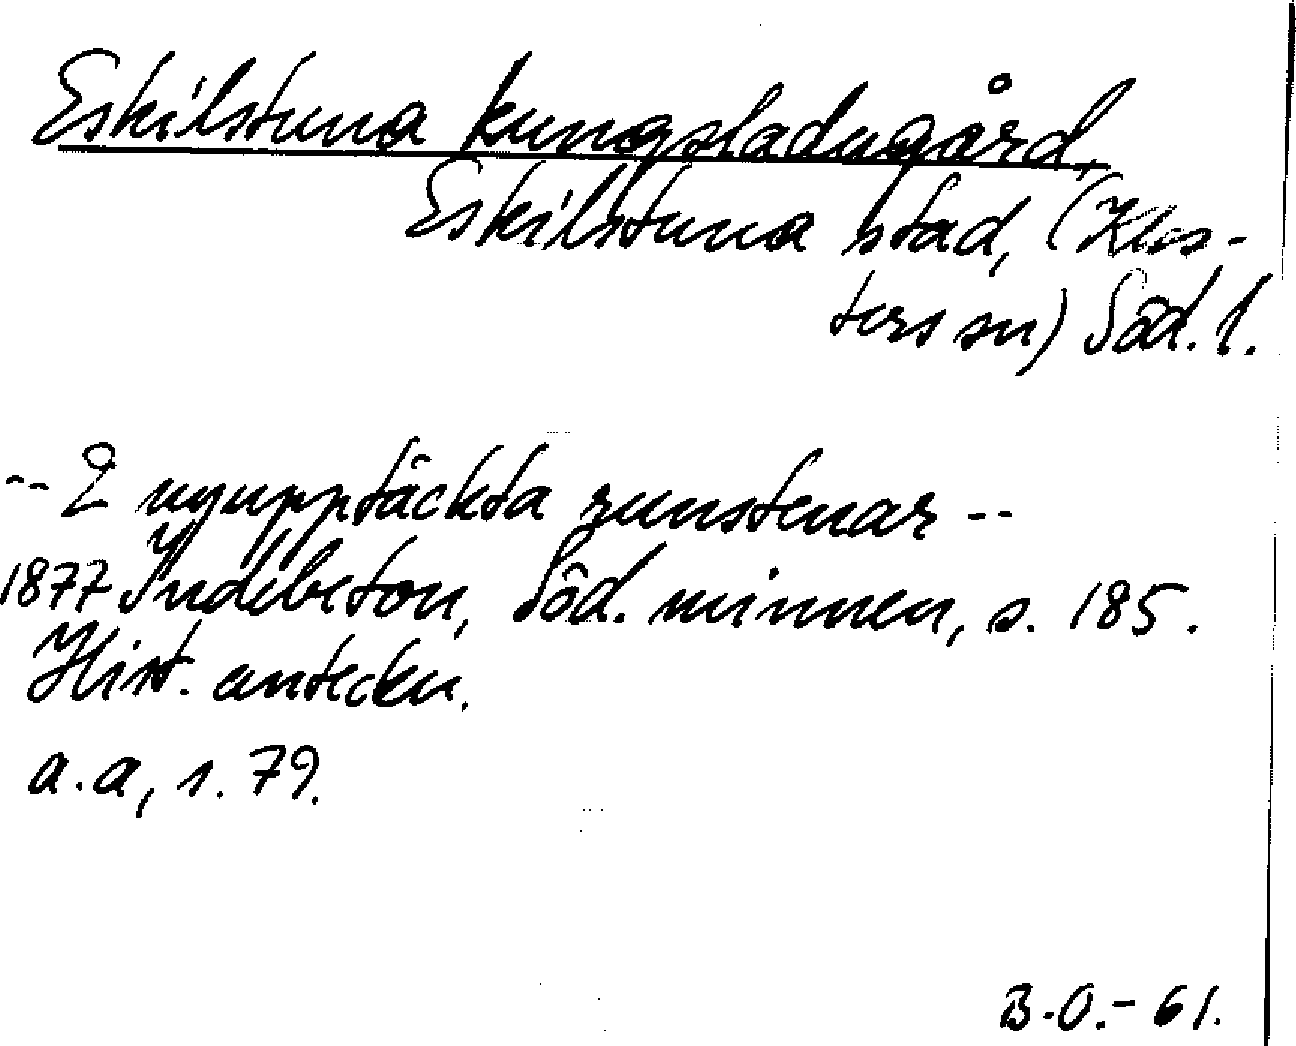 Eskilstuna kungsladugård,
Eskilstuna stad, (Klos-
ters sn) Söd. l.
-- 2 nyupptäckta runstenar --
1877 Indebetou, Söd. minnen, s. 185.
Hist. anteckn.
a.a, s. 79.
B.O.- 61.